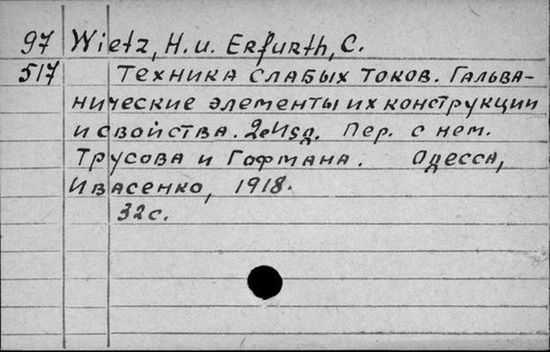 97 Wietz, H. u. Erfurth, C.
517 Техника слабых токов. Гальва-
нические элементы их конструкции
и свойства. Пер. с нем.
Трусова и Гофмана. Одесса,
Ивасенко, 1918.
32 с.